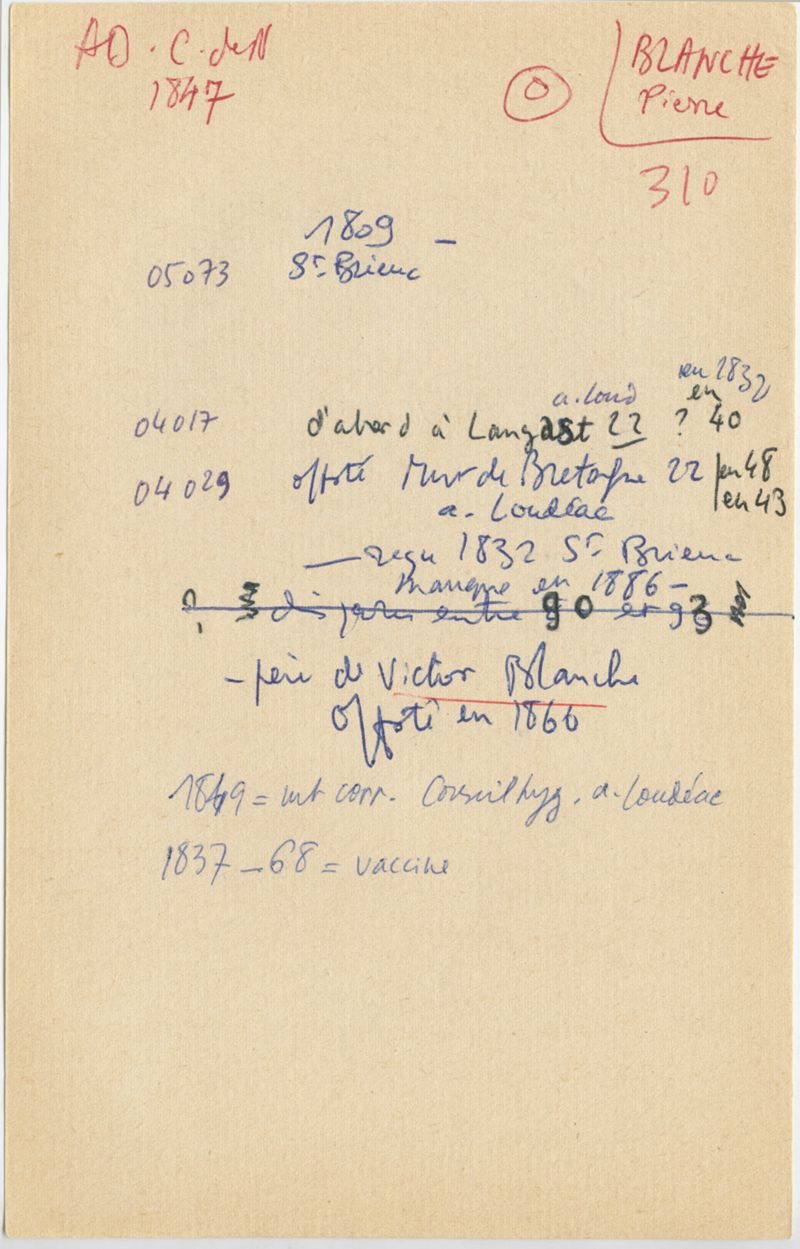 AD. C. de N
1847
O
BLANCHE
Pierre
310
1809 –
05073 St Brieuc
a. Loud en 1832
04017 d'abord à Langast 22 ? en 40
04029 offsté Mur de Bretagne 22 en 48
a. Loudéac en 43
— reçu 1832 St Brieuc
manque en 1886 –
? disparu entre 90 et 93
– père de Victor Blanche
offsté en 1866
1849 = mb corr. Conseil hyg. a. Loudéac
1837 – 68 = vaccine